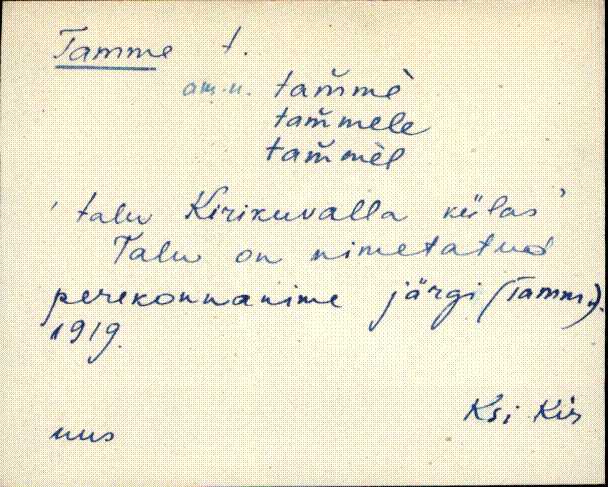 Tamme t.
am.n. tam̆mè
tam̆mele
tam̆mèl
'talu Kirikuvalla külas'
Talu on nimetatud
perekonnanime järgi (Tamm).
1919.
Ksi Kir
uus